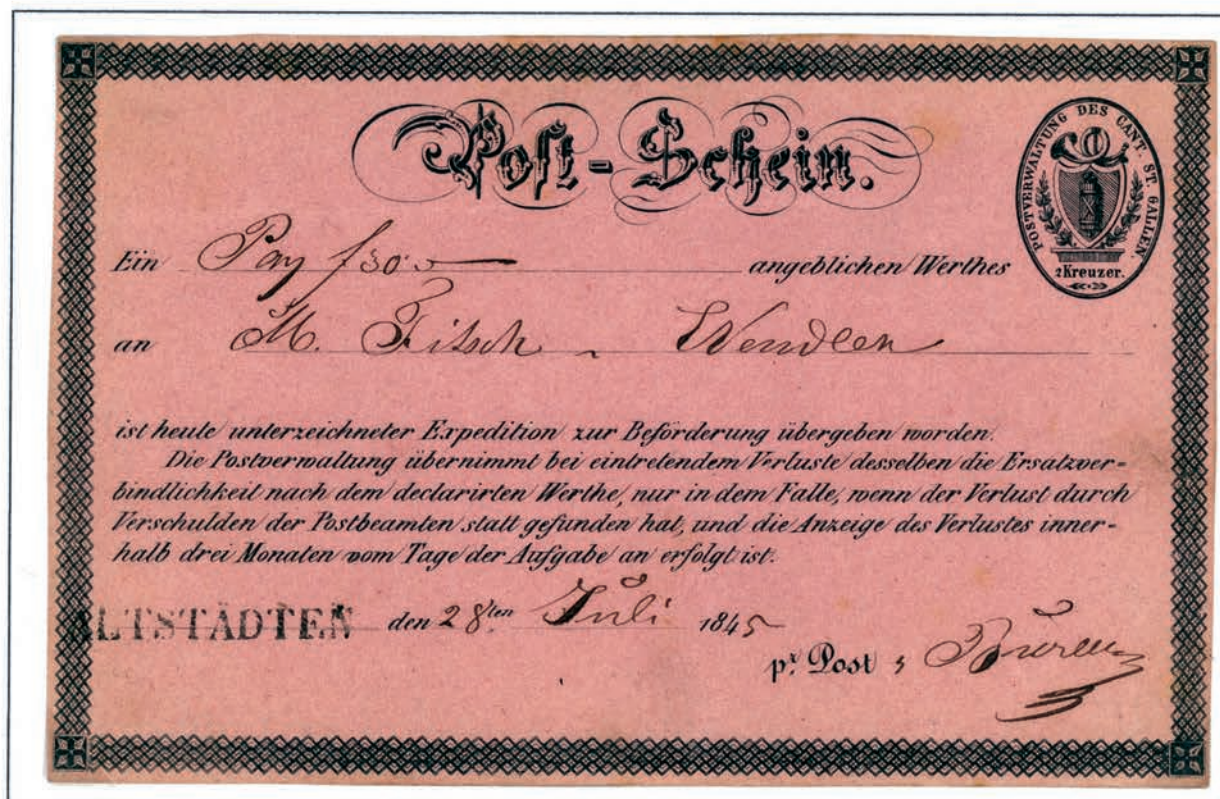 Post-Schein.
POSTVERWALTUNG DES CANT. ST. GALLEN.
2 Kreuzer.
Ein angeblichen Werthes
an M. Fitsch - Wendlen
ist heute unterzeichneter Expedition zur Beförderung übergeben worden.
Die Postverwaltung übernimmt bei eintretendem Verluste desselben die Ersatzver-
bindlichkeit nach dem declarirten Werthe, nur in dem Falle, wenn der Verlust durch
Verschulden der Postbeamten statt gefunden hat, und die Anzeige des Verlustes inner-
halb drei Monaten vom Tage der Aufgabe an erfolgt ist.
ALTSTÄDTEN den 28ten Juli 1845
pr. Post